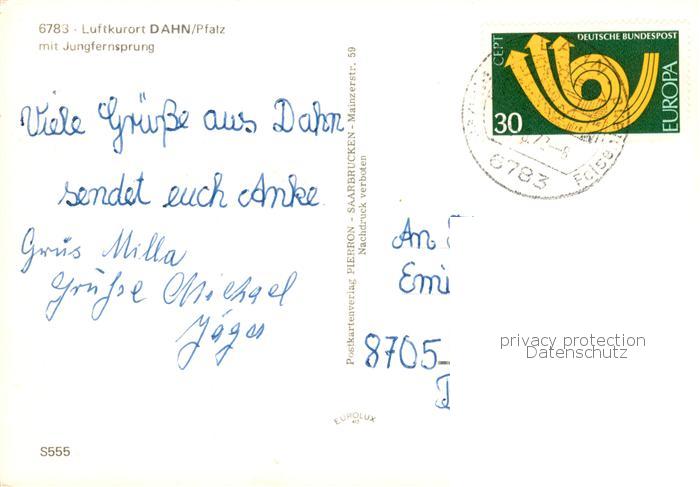 6783 - Luftkurort DAHN/Pfalz
mit Jungfernsprung
Viele Grüße aus Dahn
sendet euch Anke.
Grüs Milla
Grüße Michael
Jäger
S555
Postkartenverlag PIERRON - SAARBRÜCKEN - Mainzerstr. 59
Nachdruck verboten
EUROLUX
CEPT
DEUTSCHE BUNDESPOST
EUROPA
30
6783
An
Emi
8705-
privacy protection
Datenschutz